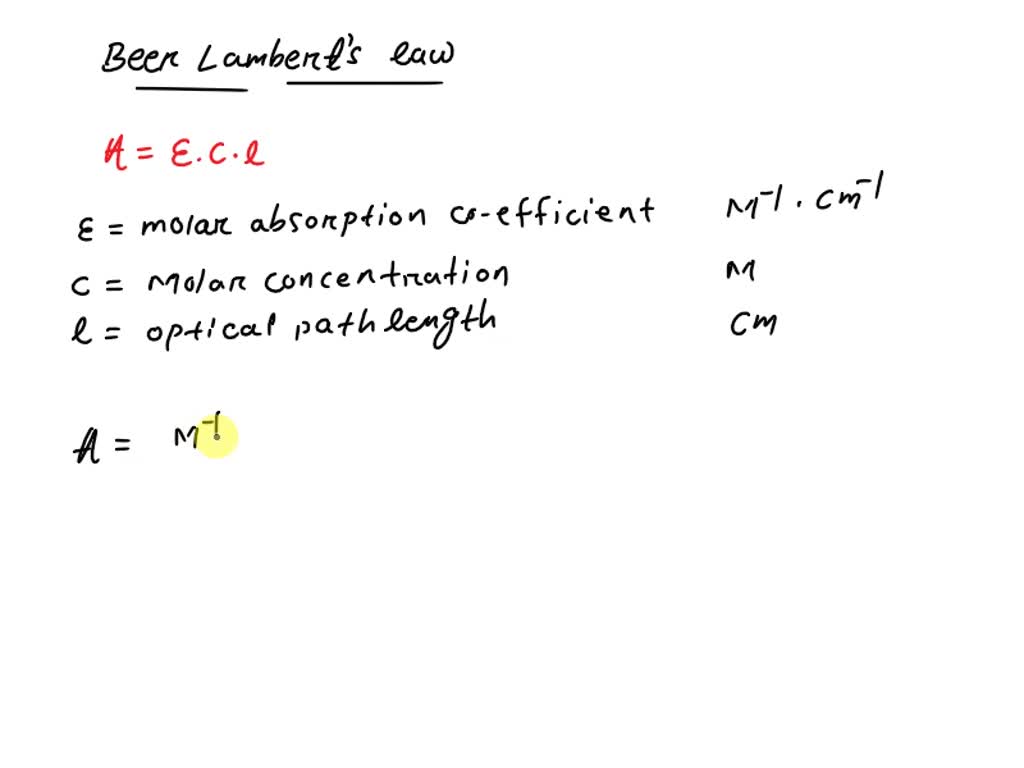 Beer Lambert's law
A = ε.c.l
ε = molar absorption co-efficient M⁻¹ . cm⁻¹
c = Molar concentration M
l = optical path length cm
A = M⁻¹